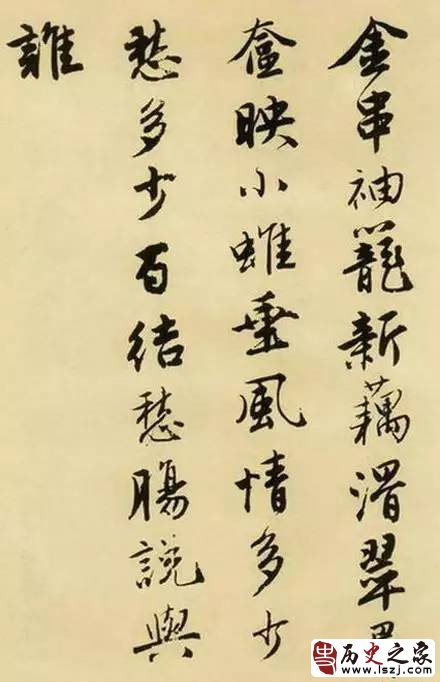 金串袖籠新藕滑翠
奩映小蜼垂風情多少
愁多少百結愁腸說與
誰
历史之家
www.lszj.com